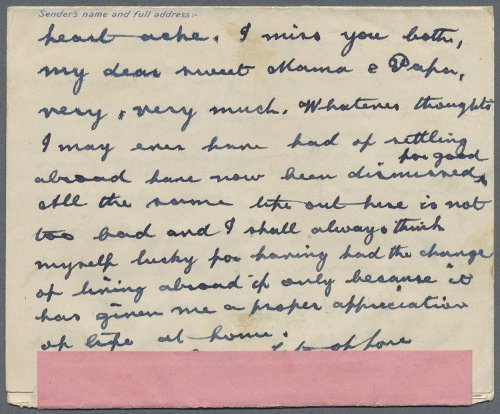 Sender's name and full address:-
heart ache. I miss you both,
my dear sweet Mama & Papa,
very, very much. Whatever thoughts
I may ever have had of settling
abroad have now been dismissed for good.
All the same life out here is not
too bad and I shall always think
myself lucky for having had the change
of living abroad if only because it
has given me a proper appreciation
of life at home.
of love